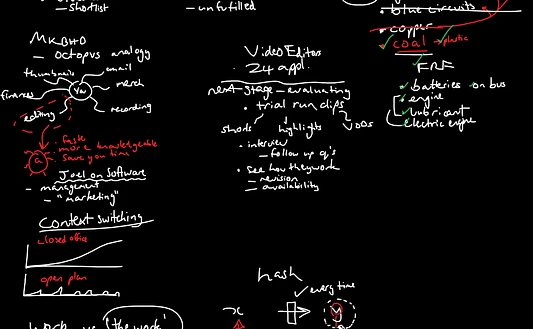 shortlist
- unfufilled
blue circuits
copper
coal → plastic
FRF
batteries on bus
engine
lubricant
electric engine
MKBHD
- octopus analogy
thumbnails
email
You
merch
finances
editing
recording
a
faster
more knowledgeable
save you time
Joel on Software
- management
- "marketing"
Context switching
closed office
open plan
Video Editors
24 appl.
next stage - evaluating
trial run clips
shorts
highlights
VODs
interview
- follow up q's
see how they work
- revision
- availability
hash
every time
x
y
work vs "the work"